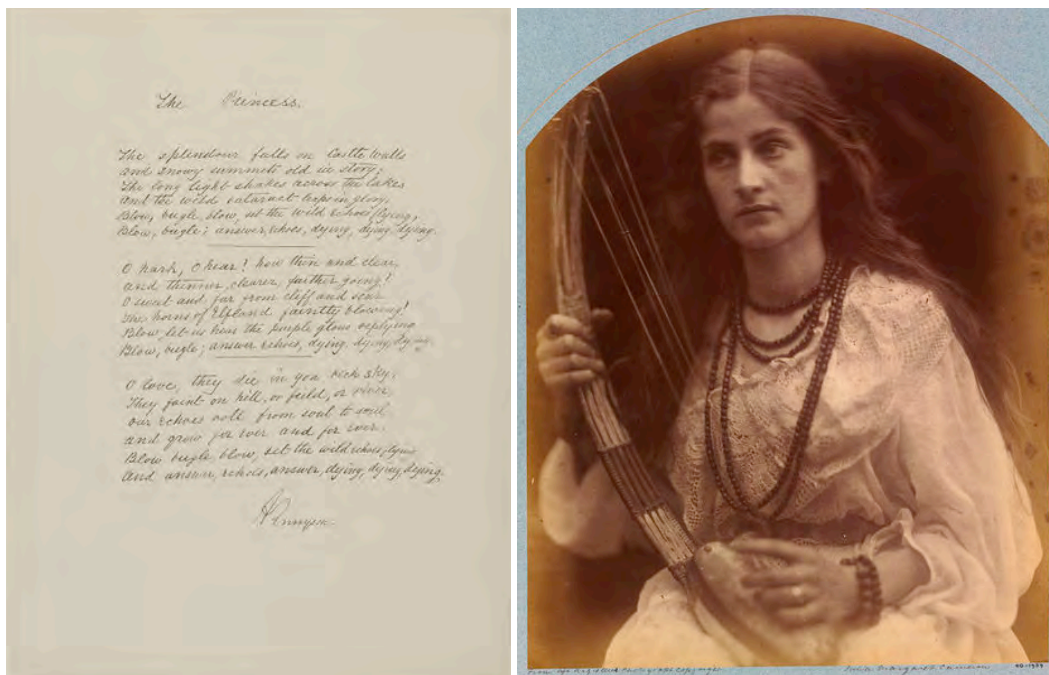 The Princess.
The splendour falls on Castle walls
and snowy summits old in story;
The long light shakes across the lakes
and the wild cataract leaps in glory,
Blow, bugle, blow, set the wild echoes flying,
Blow, bugle; answer, echoes, dying, dying, dying.
O hark, O hear! how thin and clear,
and thinner, clearer, farther going!
O sweet and far from cliff and scar
The horns of Elfland faintly blowing!
Blow let us hear the purple glens replying
Blow, bugle; answer echoes, dying, dying, dying.
O love, they die in yon rich sky,
They faint on hill, or field, or river,
our echoes roll from soul to soul
and grow for ever and for ever.
Blow bugle blow, set the wild echoes flying
And answer, echoes, answer, dying, dying, dying.
A Tennyson.
From Life Registered Photograph Copyright
Julia Margaret Cameron